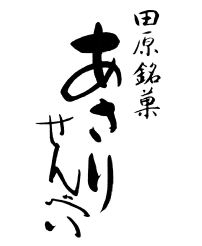 田原銘菓
あさり
せんべい